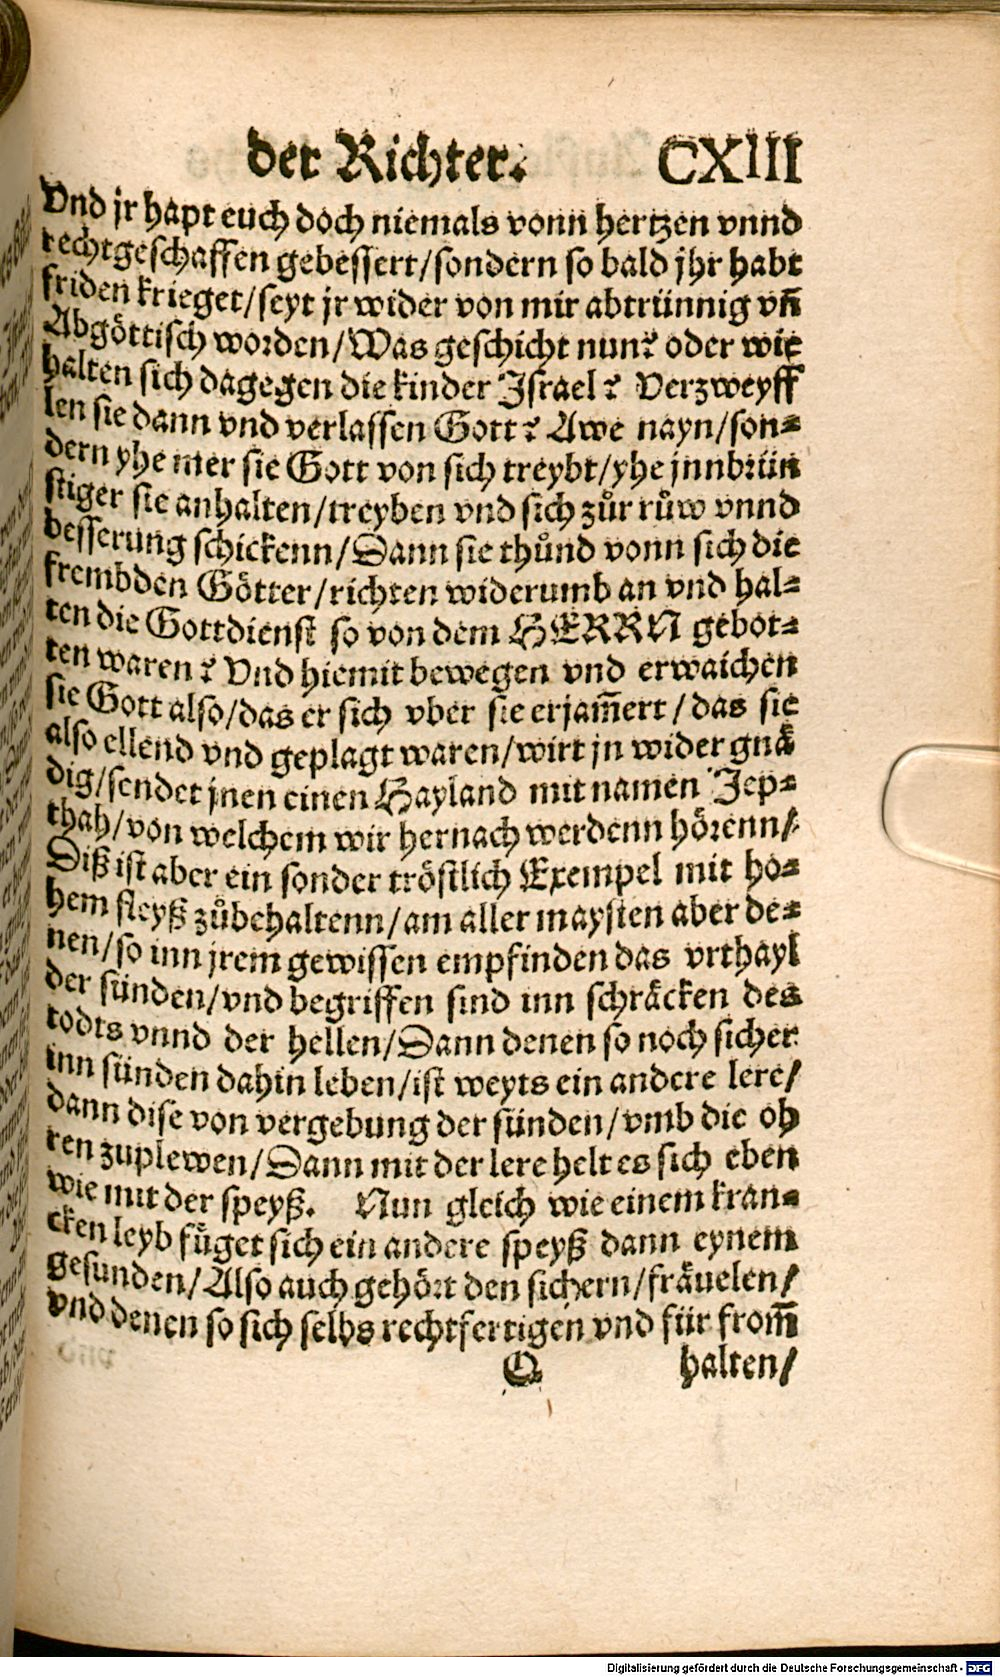 der Richter. CXIII
Vnd jr hapt euch doch niemals vonn hertzen vnnd
rechtgeschaffen gebessert/sondern so bald jhr habt
friden krieget/seyt jr wider von mir abtrünnig vñ
Abgöttisch worden/Was geschicht nun? oder wie
halten sich dagegen die kinder Israel? Verzweyff
len sie dann vnd verlassen Gott? Awe nayn/son-
dern yhe mer sie Gott von sich treybt/yhe jnnbrün
stiger sie anhalten/treyben vnd sich zůr růw vnnd
besserung schickenn/Dann sie thůnd vonn sich die
frembden Götter/richten widerumb an vnd hal-
ten die Gottdienst so von dem HERRN gebot-
ten waren? Vnd hiemit bewegen vnd erwaichen
sie Gott also/das er sich vber sie erjam̃ert/das sie
also ellend vnd geplagt waren/wirt jn wider gnä
dig/sendet jnen einen Hayland mit namen Jep-
thah/von welchem wir hernach werdenn hörenn/
Diß ist aber ein sonder tröstlich Exempel mit ho-
hem fleyß zůbehaltenn/am aller maysten aber de-
nen/so inn jrem gewissen empfinden das vrthayl
der sünden/vnd begriffen sind inn schräcken des
todts vnnd der hellen/Dann denen so noch sicher
inn sünden dahin leben/ist weyts ein andere lere/
dann dise von vergebung der sünden/vmb die oh
ren zuplewen/Dann mit der lere helt es sich eben
wie mit der speyß. Nun gleich wie einem kran-
cken leyb füget sich ein andere speyß dann eynem
gesunden/Also auch gehört den sichern/fräuelen/
vnd denen so sich selbs rechtfertigen vnd für from̃
Q halten/
Digitalisierung gefördert durch die Deutsche Forschungsgemeinschaft - DFG